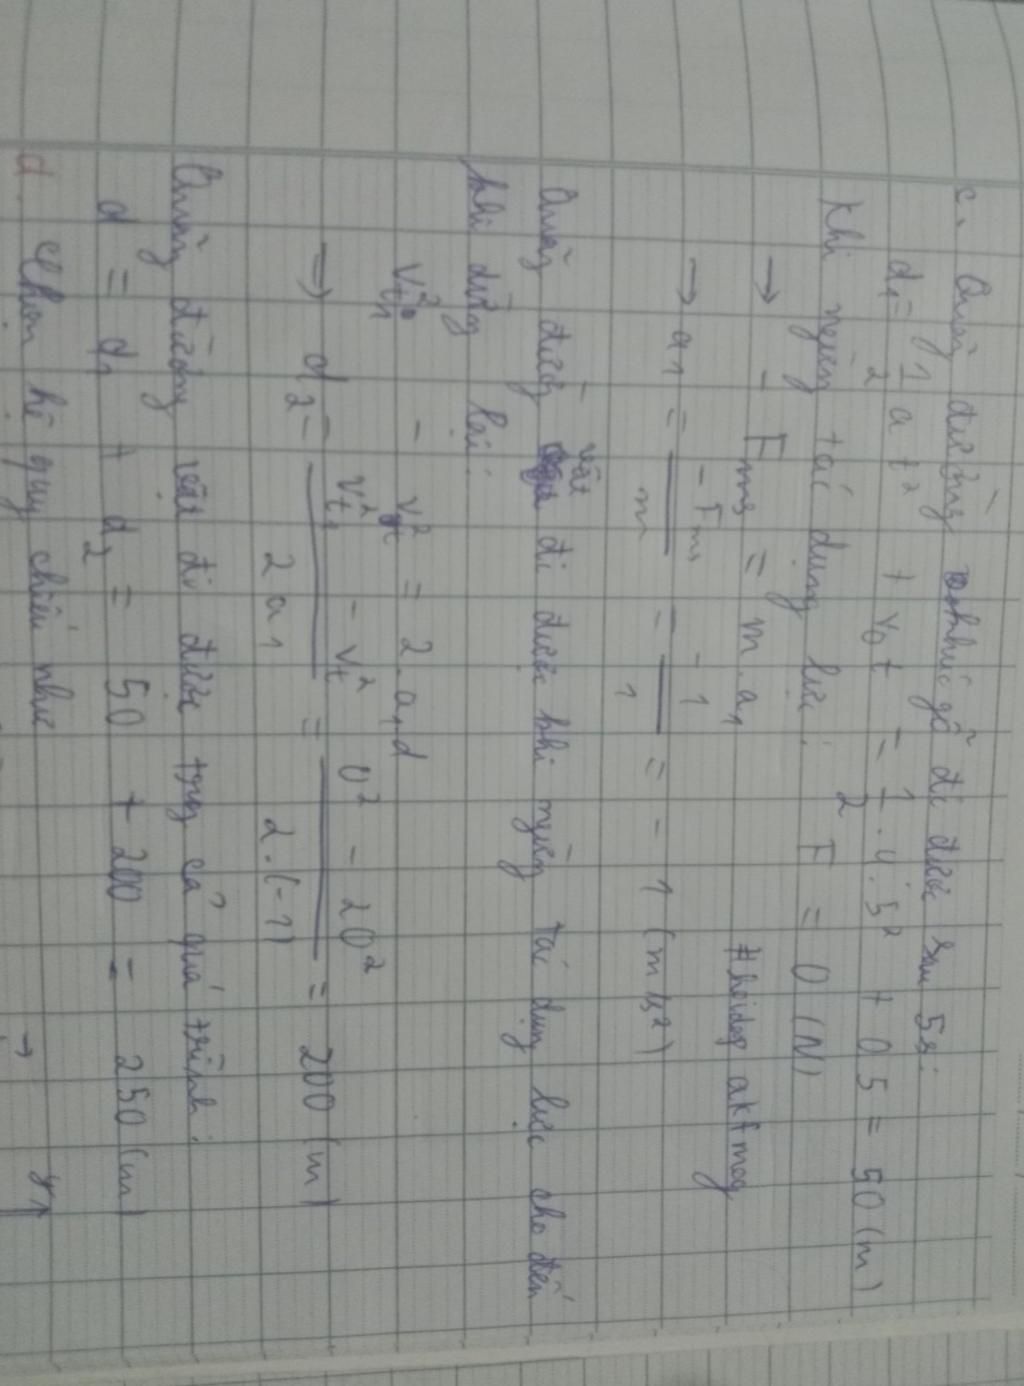 c. Quãng đường khúc gỗ đi được sau 5s:
d₁ = 1/2 a t² + v₀ t = 1/2 . 4 . 5² + 0.5 = 50 (m)
Khi ngừng tác dụng lực: F = 0 (N)
→ - Fms = m . a₁ #hoidap akfmog
→ a₁ = -Fms/m = -1/1 = - 1 (m/s²)
Quãng đường vật đi được khi ngừng tác dụng lực cho đến
khi dừng lại:
vt₁² - vt² = 2 . a₁ . d
→ d₂ = (vt₁² - vt²)/(2 a₁) = (0² - 20²)/(2 . (-1)) = 200 (m)
Quãng đường vật đi được trong cả quá trình:
d = d₁ + d₂ = 50 + 200 = 250 (m)
d. Chọn hệ quy chiếu như
→ y↑